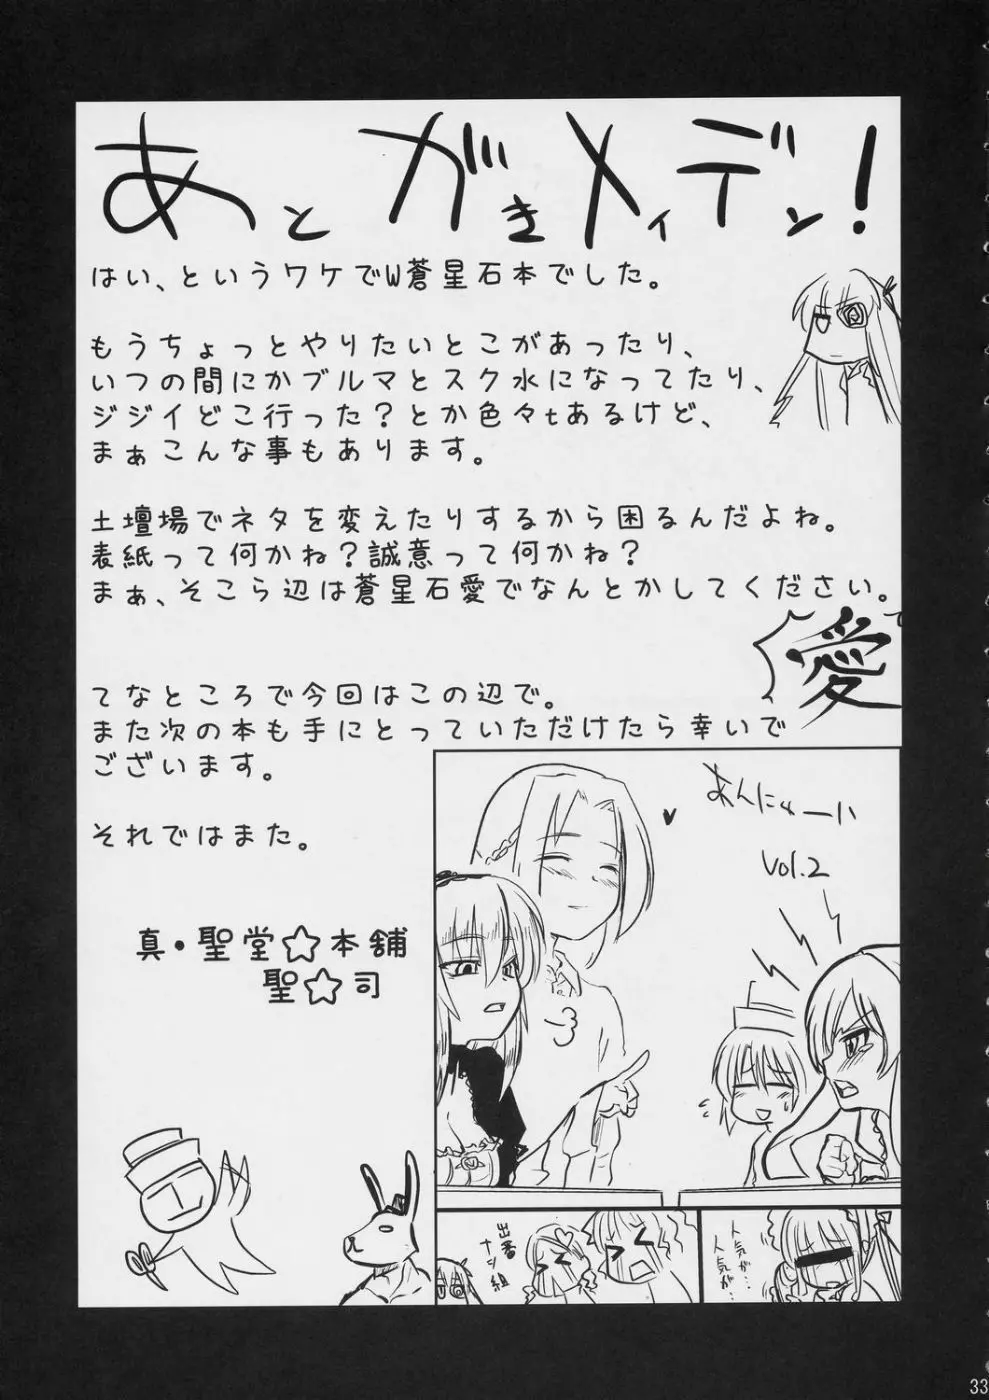 あとがきメイデン!
はい、というワケでW蒼星石本でした。
もうちょっとやりたいとこがあったり、
いつの間にかブルマとスク水になってたり、
ジジイどこ行った?とか色々tあるけど、
まぁこんな事もあります。
土壇場でネタを変えたりするから困るんだよね。
表紙って何かね?誠意って何かね?
まぁ、そこら辺は蒼星石愛でなんとかしてください。
愛
てなところで今回はこの辺で。
また次の本も手にとっていただけたら幸いで
ございます。
それではまた。
真・聖堂☆本舗
聖☆司
あんにゅーい
vol.2
出番
ナシ組
人気が…
人気が…
33